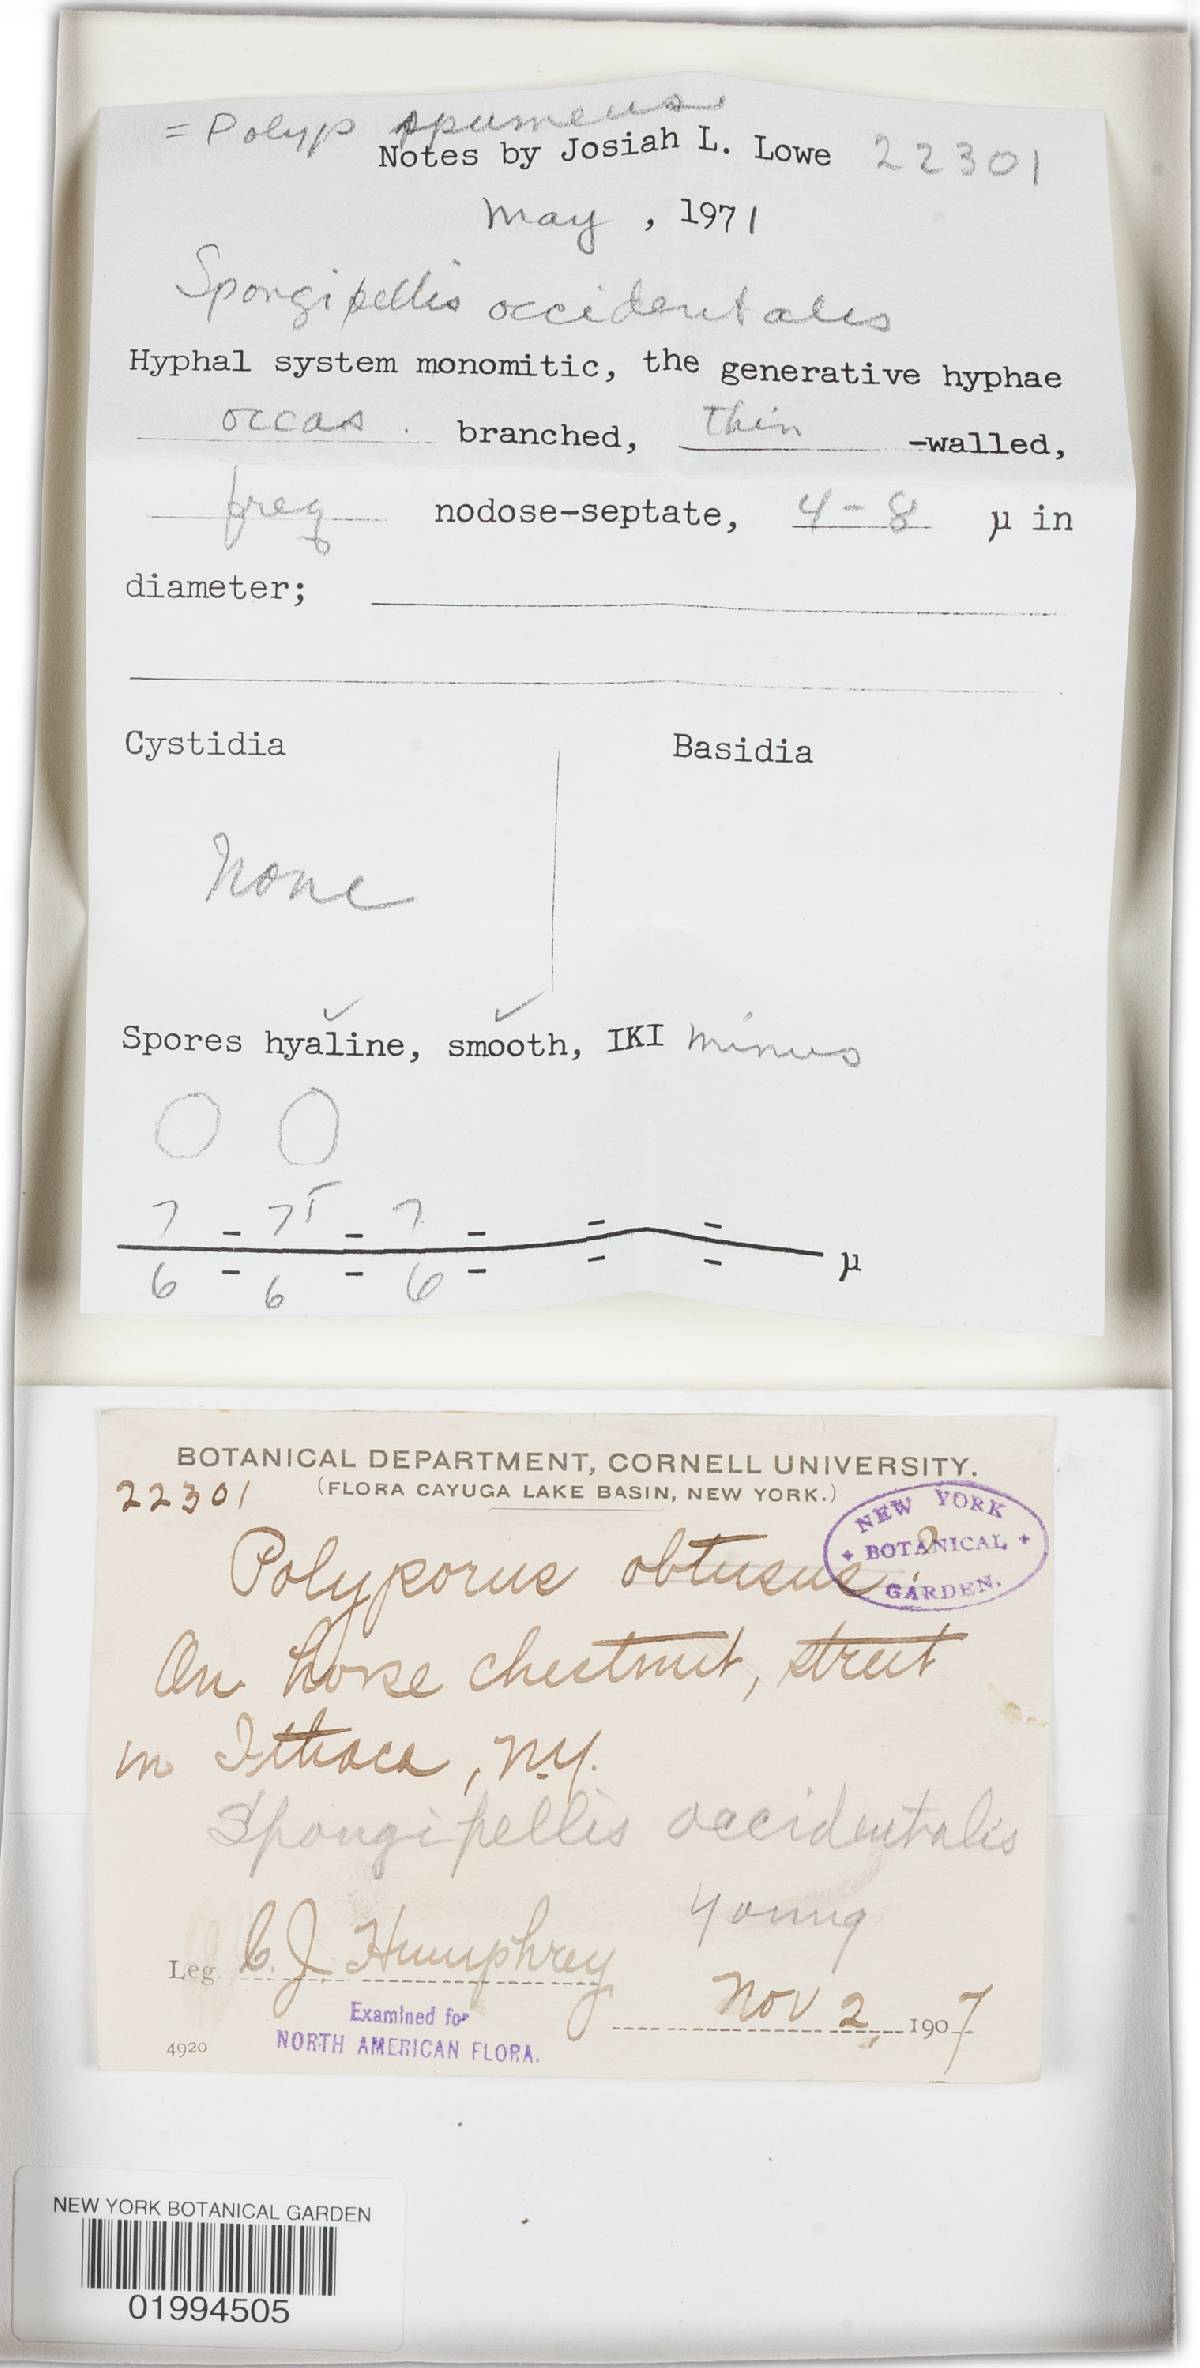 = Polyp spumeus
Notes by Josiah L. Lowe 22301
May , 1971
Spongipellis occidentalis
Hyphal system monomitic, the generative hyphae
occas. branched, thin -walled,
freq nodose-septate, 4-8 µ in
diameter;
Cystidia Basidia
None
Spores hyaline, smooth, IKI minus
7 - 75 - 7 - - -
µ
6 - 6 - 6 - - -
BOTANICAL DEPARTMENT, CORNELL UNIVERSITY.
22301 (FLORA CAYUGA LAKE BASIN, NEW YORK.)
NEW YORK
+ BOTANICAL +
GARDEN.
Polyporus obtusus ?
On horse chestnut, street
in Ithaca, N.Y.
Spongipellis occidentalis
Young
Leg. C. J. Humphrey
Nov 2, 1907
Examined for
NORTH AMERICAN FLORA.
4920
NEW YORK BOTANICAL GARDEN
01994505